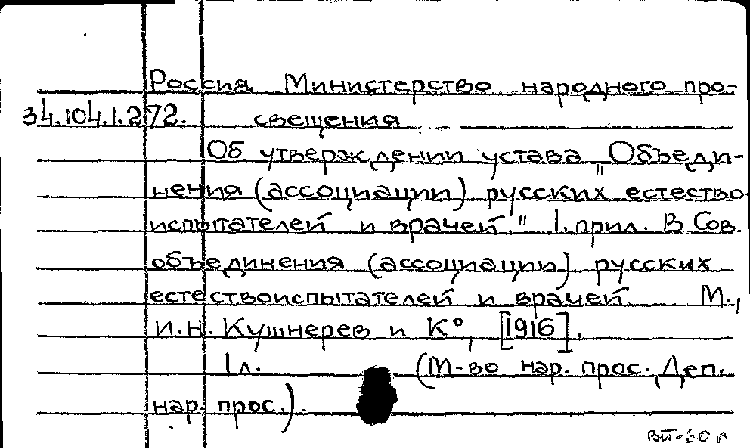 Россия Министерство народного про-
34.104.1.272. свещения
Об утверждении устава "Объеди-
нения (ассоциации) русских естество
испытателей и врачей" 1. прил. В Сов.
объединения (ассоциации) русских
естествоиспытателей и врачей. М.,
И.Н. Кушнерев и К°, [1916].
1л. (М-во нар. прос. Деп.
нар. прос.).